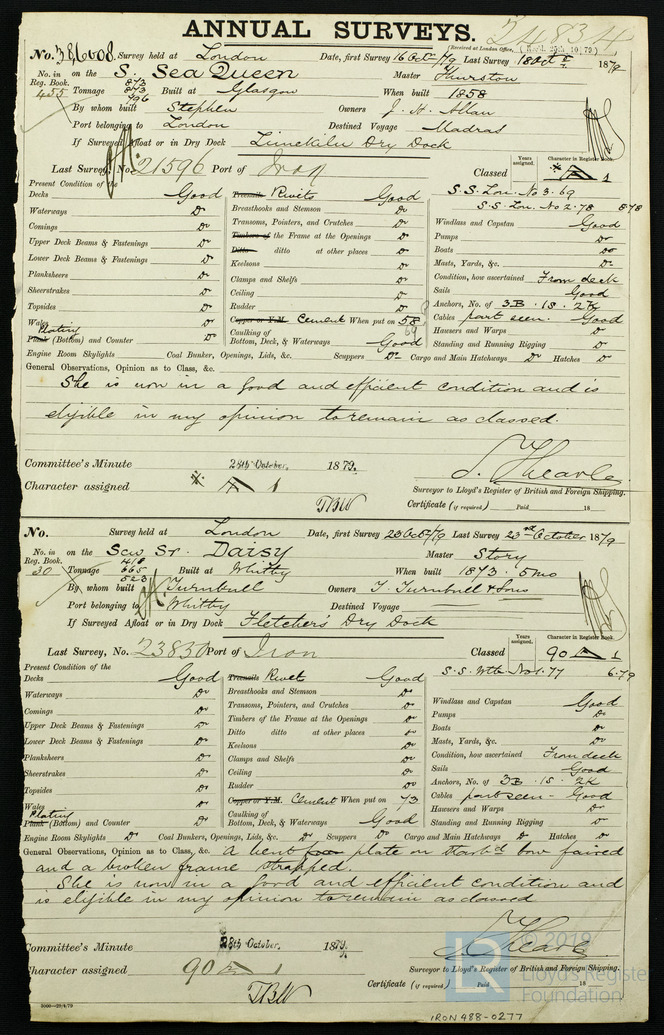 ANNUAL SURVEYS. 24834
(Received at London Office, Recd. 25th 10/79)
No. 386008 Survey held at London Date, first Survey 16 Oct 79 Last Survey 18 Oct 1879
No. in Reg. Book. 455 on the S. Sea Queen Master Thurston
Tonnage 873 873 796 Built at Glasgow When built 1858
By whom built Stephen Owners J. H. Allan
Port belonging to London Destined Voyage Madras
If Surveyed Afloat or in Dry Dock Limekiln Dry Dock
Last Survey, No. 21596 Port of Iron Years assigned. Character in Register Book.
Classed A 1
S.S. Lon. No 3.69
S.S. Lon. No 2.78 8.78
Present Condition of the
Decks Good Treenails Rivets Good
Waterways Do Breasthooks and Stemson Do Windlass and Capstan Good
Comings Do Transoms, Pointers, and Crutches Do Pumps Do
Upper Deck Beams & Fastenings Do Timbers of the Frame at the Openings Do Boats Do
Lower Deck Beams & Fastenings Do Ditto ditto at other places Do Masts, Yards, &c. Do
Planksheers Do Keelsons Do Condition, how ascertained From deck
Sheerstrakes Do Clamps and Shelfs Do Sails Good
Topsides Do Ceiling Do Anchors, No. of 3B. 1S. 2K
Wales Rudder Do Cables part seen. Good
Plating Copper or Y.M. Cement When put on 58 69 Hawsers and Warps Do
Plank (Bottom) and Counter Do Caulking of Bottom, Deck, & Waterways Good Standing and Running Rigging Do
Engine Room Skylights Coal Bunker, Openings, Lids, &c. Scuppers Do Cargo and Main Hatchways Do Hatches Do
General Observations, Opinion as to Class, &c.
She is now in a good and efficient condition and is
eligible in my opinion to remain as classed.
Committee's Minute 28th October, 1879.
Character assigned A 1 S. Thearle.
TBW Surveyor to Lloyd's Register of British and Foreign Shipping.
Certificate (if required) Paid 18
No. Survey held at London Date, first Survey 23 Oct 79 Last Survey 23rd October 1879
No. in Reg. Book. 30 on the Scw Sr. Daisy Master Story
Tonnage 665 523 Built at Whitby When built 1873. 5mo
By whom built Turnbull Owners T. Turnbull & Sons
Port belonging to Whitby Destined Voyage
If Surveyed Afloat or in Dry Dock Fletchers Dry Dock
Last Survey, No. 23830 Port of Iron Years assigned. Character in Register Book.
Classed 90 A 1
S.S. Wtb No 1.77 6.79
Present Condition of the
Decks Good Treenails Rivet Good
Waterways Do Breasthooks and Stemson Do Windlass and Capstan Good
Comings Do Transoms, Pointers, and Crutches Do Pumps Do
Upper Deck Beams & Fastenings Do Timbers of the Frame at the Openings Do Boats Do
Lower Deck Beams & Fastenings Do Ditto ditto at other places Do Masts, Yards, &c. Do
Planksheers Do Keelsons Do Condition, how ascertained From deck
Sheerstrakes Do Clamps and Shelfs Do Sails Good
Topsides Do Ceiling Do Anchors, No. of 3B. 1S. 2K
Wales Rudder Do Cables part seen - Good
Plating Copper or Y.M. Cement When put on 73 Hawsers and Warps Do
Plank (Bottom) and Counter Do Caulking of Bottom, Deck, & Waterways Good Standing and Running Rigging Do
Engine Room Skylights Do Coal Bunkers, Openings, Lids, &c. Do Scuppers Do Cargo and Main Hatchways Do Hatches Do
General Observations, Opinion as to Class, &c. A bent plate on starbd bow faired
and a broken frame strapped.
She is now in a good and efficient condition and
is eligible in my opinion to remain as classed
Committee's Minute 28th October, 1879.
Character assigned 90 A 1 S. Thearle.
TBW Surveyor to Lloyd's Register of British and Foreign Shipping.
Certificate (if required) Paid 18
3000—29/4/79
IRON 488-0277
© 2019
LR Lloyd's Register
Foundation